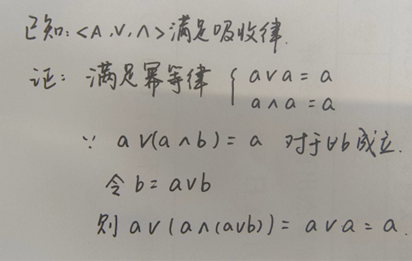 已知:<A,∨,∧>满足吸收律.
证: 满足幂等律 { a∨a=a
a∧a=a
∵ a∨(a∧b)=a 对于∀b成立.
令b=a∨b
则 a∨(a∧(a∨b))=a∨a=a.